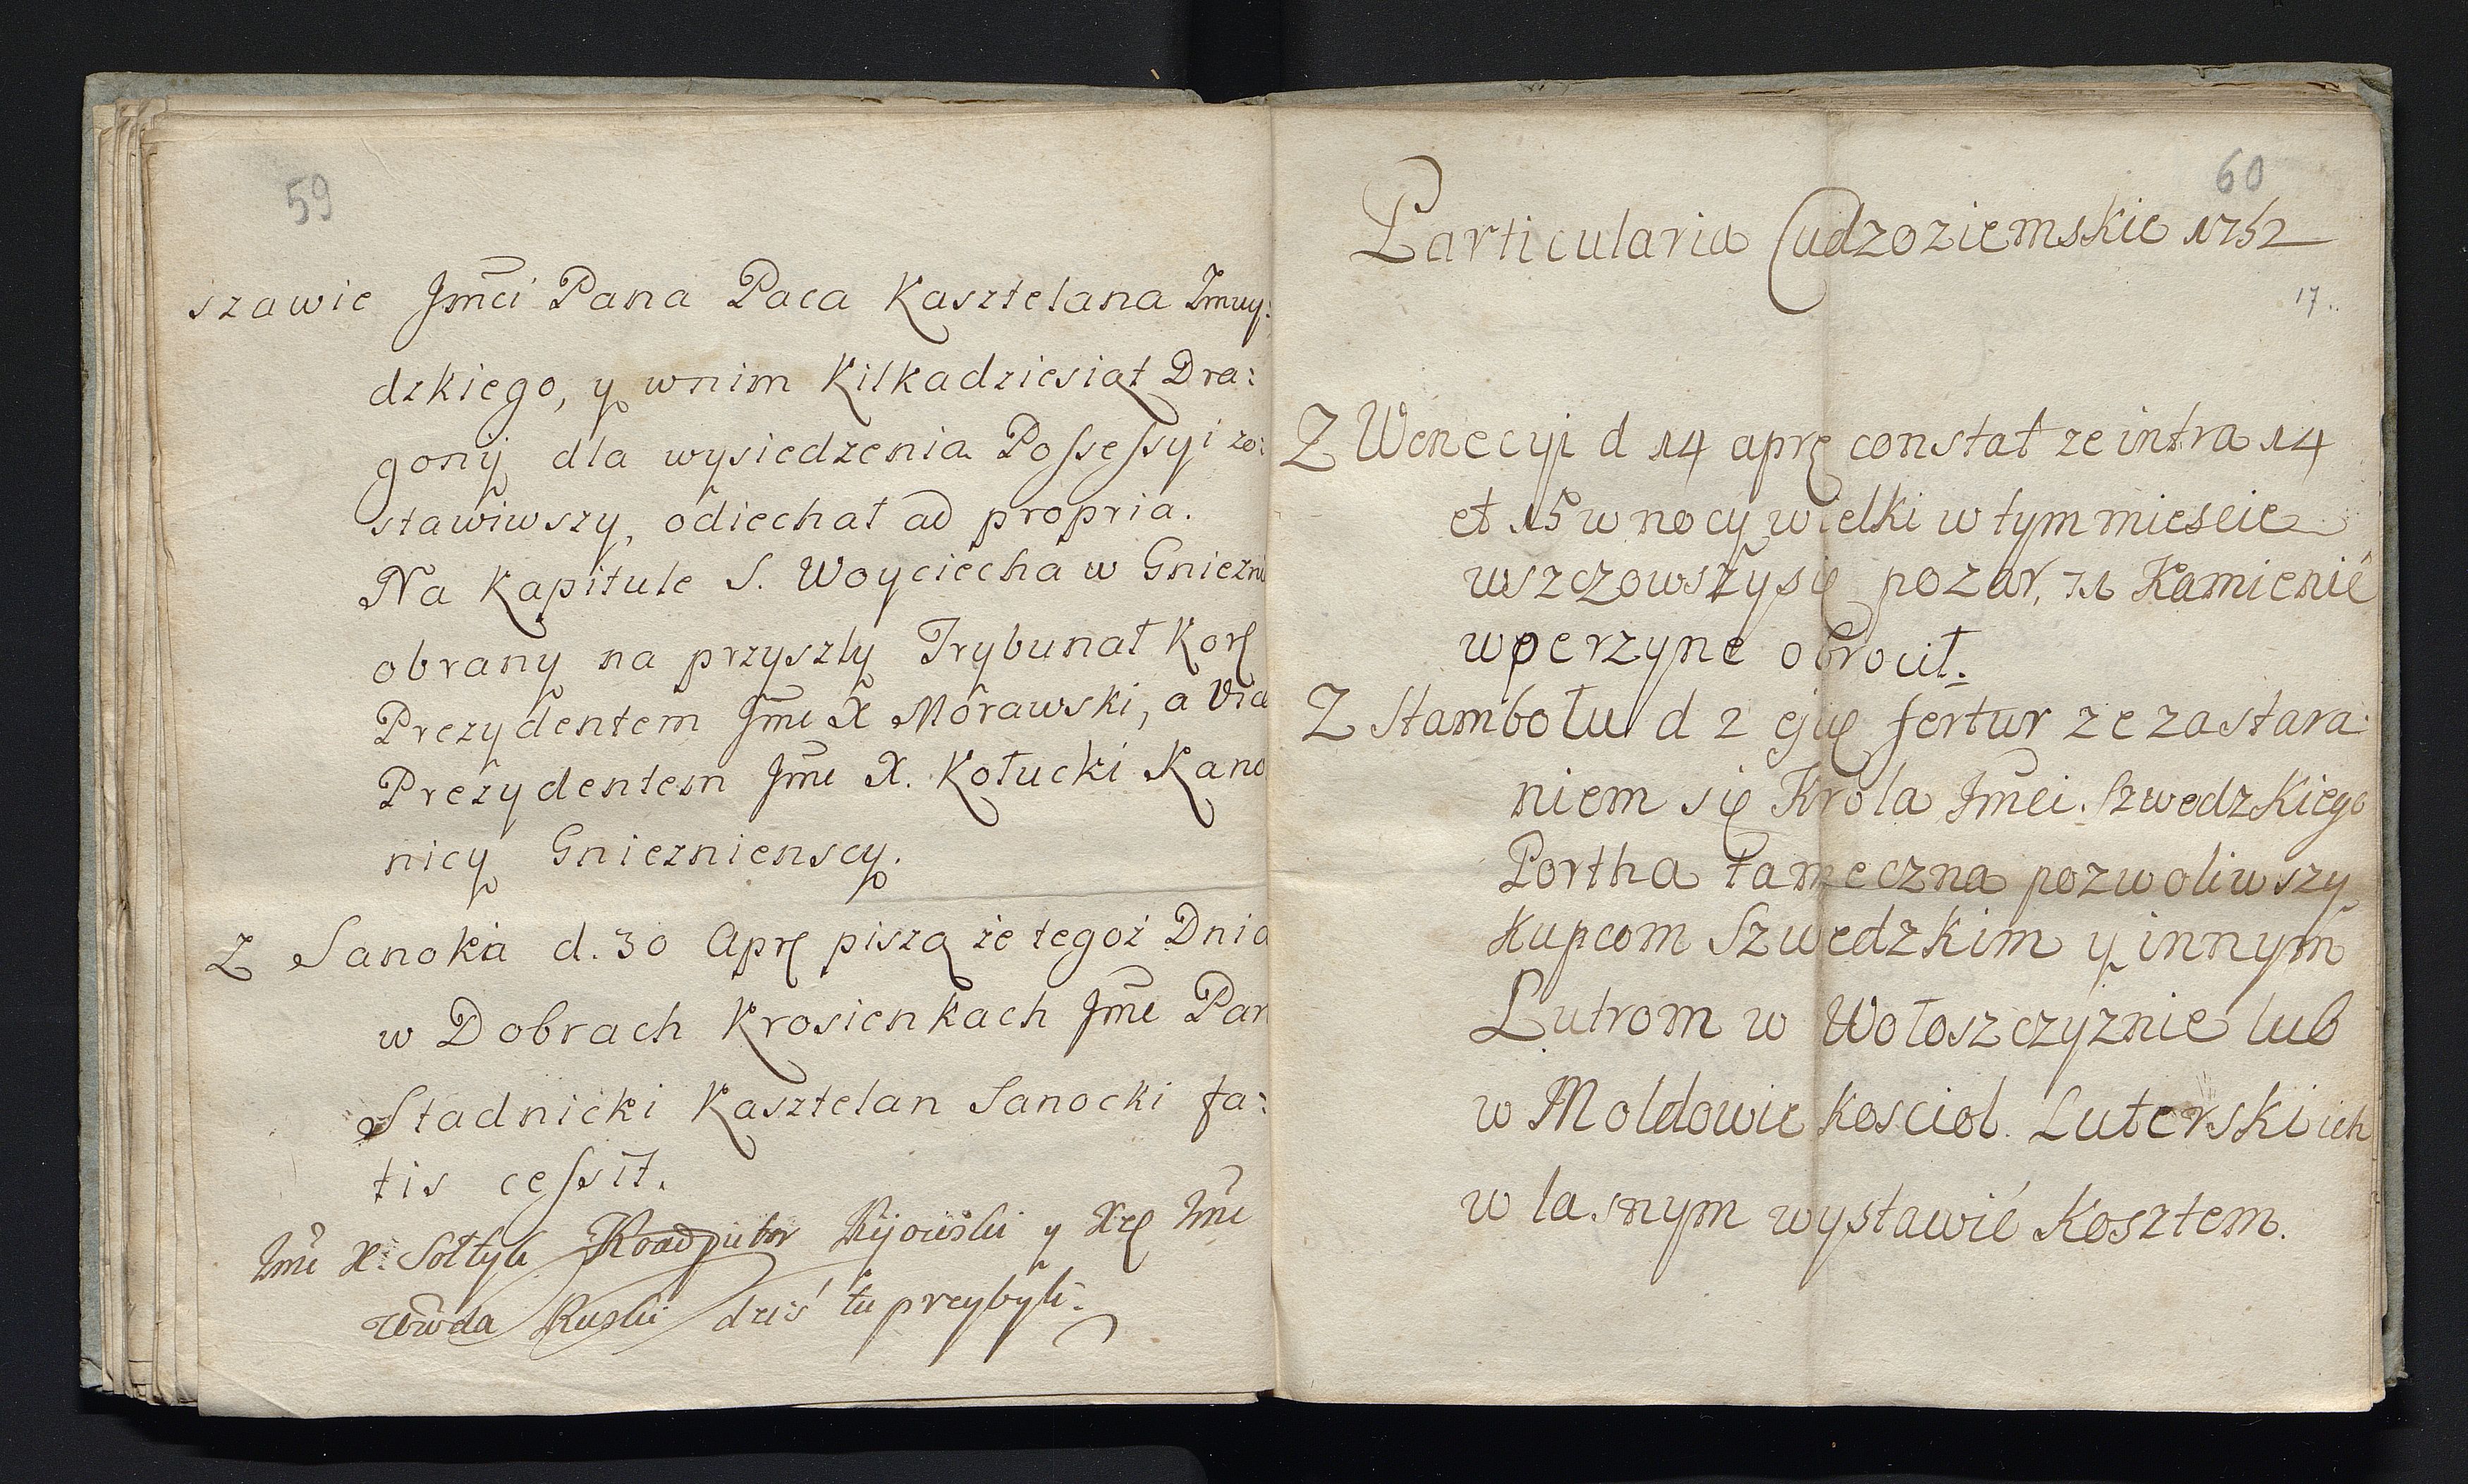 59
szawie Jmci Pana Paca Kasztelana Zmuy:
dzkiego, y wnim Kilkadziesiąt Dra:
gonij dla wysiedzenia Possessyi zo:
stawiwszy, odiechał ad propria.
Na Kapitule S. Woyciecha w Gniezni
obrany na przyszły Trybunał Kor
Prezydentem Jmć X Morawski, a Vice
Prezydentem Jmć X. Kołucki Kano
nicy Gnieznienscy.
Z Sanoka d. 30 Apr piszą że tegoż Dnia
w Dobrach Krosienkach Jmć Pan
Stadnicki Kasztelan Sanocki fa:
tis cessit.
Jmć X. Sołtyk Koadjutor Kijowski y Xże Jmć
Wwda Ruski dziś tu przybyli.
60
Particularia Cudzoziemskie 1752
17.
Z Wenecyi d 14 apr constat ze intra 14
et 15 w nocy wielki w tym miescie
wszczowszy się pozar, 71 Kamienic
w perzyne obrocił.
Z Stambołu d 2 ejus fertur ze za stara:
niem się Krola Jmci. Szwedzkiego
Portha tameczna pozwoliwszy
Kupcom Szwedzkim y innym
Lutrom w Wołoszczyznie lub
w Moldowie kosciol. Luterski ich
w lasnym wystawić Kosztem.